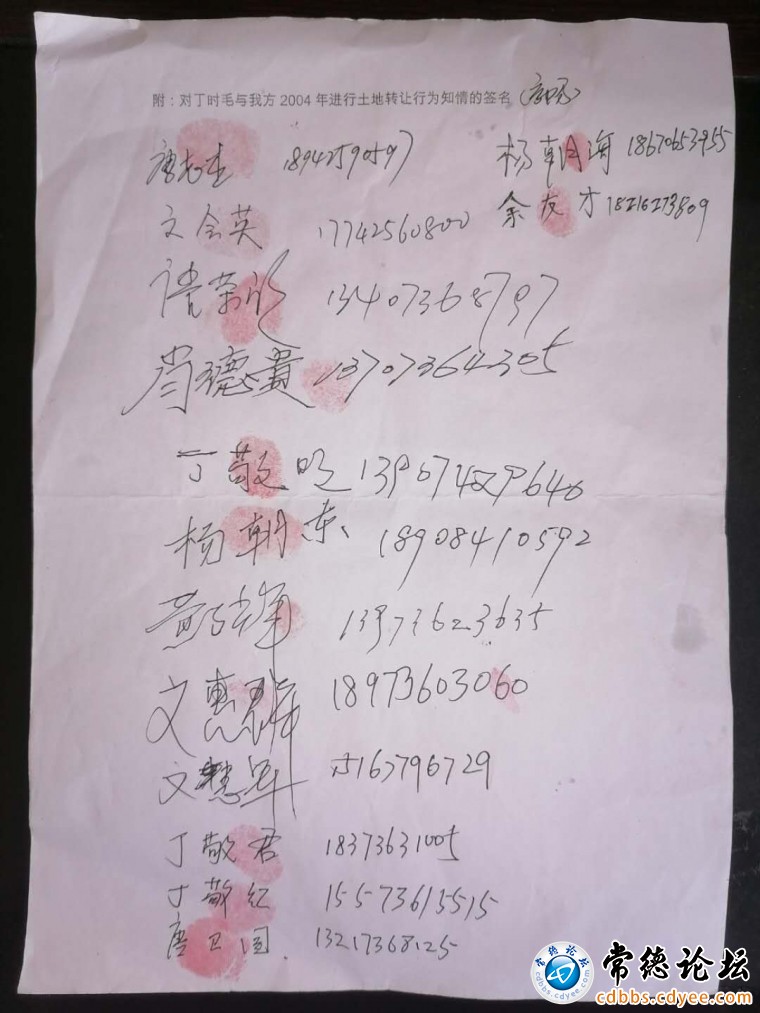 附：对丁时毛与我方 2004 年进行土地转让行为知情的签名
唐志 18942590597
杨朝海 18670653955
文会英 17742560800
余友才 18216273809
13407368797
肖德贵 13707364305
丁敬
杨朝东 18908410592
黄 13973623635
文惠群 18973603060
文慧军 15163796729
丁敬君 18373631005
丁敬红 15573615515
唐卫国 13217368125
常德论坛
cdbbs.cdyee.com